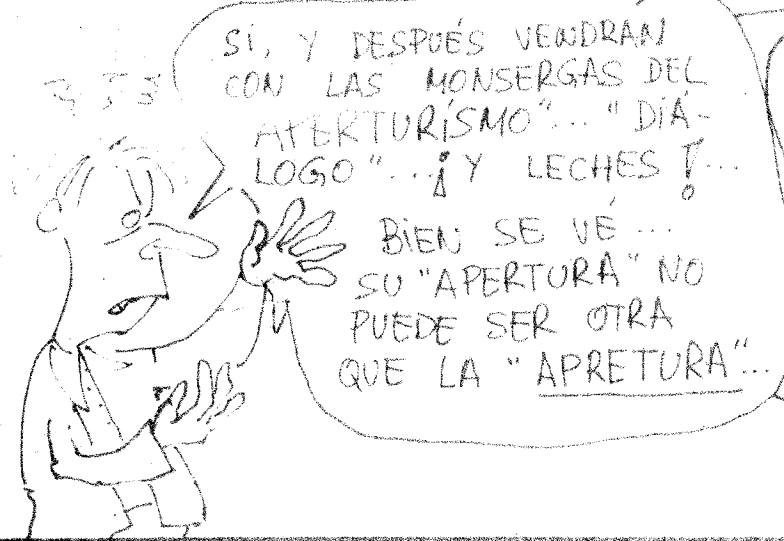 SÍ, Y DESPUÉS VENDRÁN
CON LAS MONSERGAS DEL
APERTURÍSMO"... "DIÁ-
LOGO"...¡Y LECHES!...
BIEN SE VÉ...
SU "APERTURA" NO
PUEDE SER OTRA
QUE LA "APRETURA"...